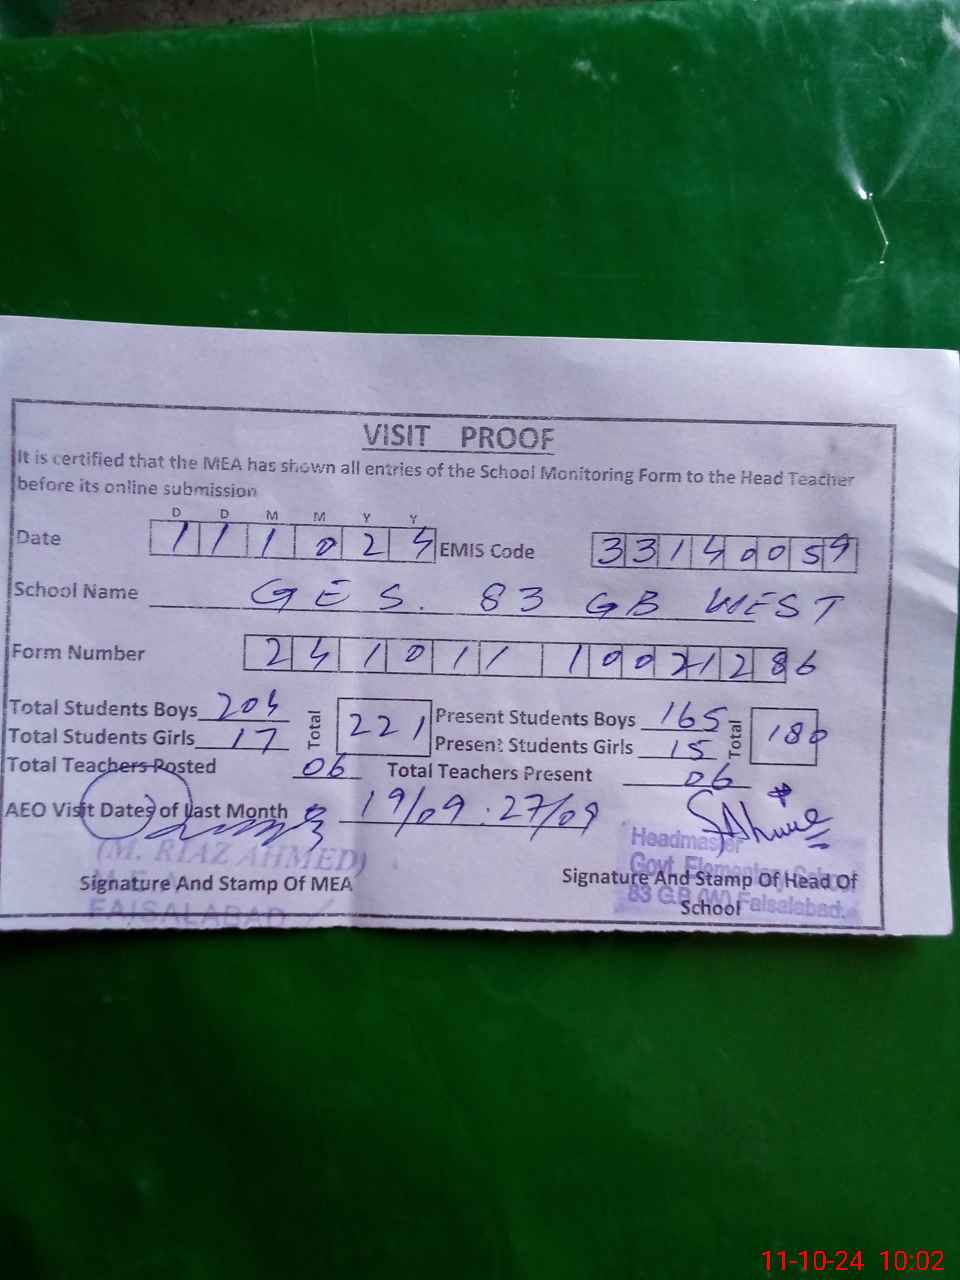 VISIT PROOF
It is certified that the MEA has shown all entries of the School Monitoring Form to the Head Teacher
before its online submission
D D M M Y Y
Date 111024 EMIS Code 33140059
School Name GES. 83 GB WEST
Form Number 241011 10021286
Total Students Boys 204 Total 221 Present Students Boys 165 Total 180
Total Students Girls 17 Present Students Girls 15
Total Teachers Posted 06 Total Teachers Present 06
AEO Visit Dates of Last Month 19/09 . 27/09
(M. RIAZ AHMED)
Signature And Stamp Of MEA
FAISALABAD
Headmaster
Govt. Elementary
Signature And Stamp Of Head Of
School
83 G.B (W) Faisalabad.
11-10-24 10:02